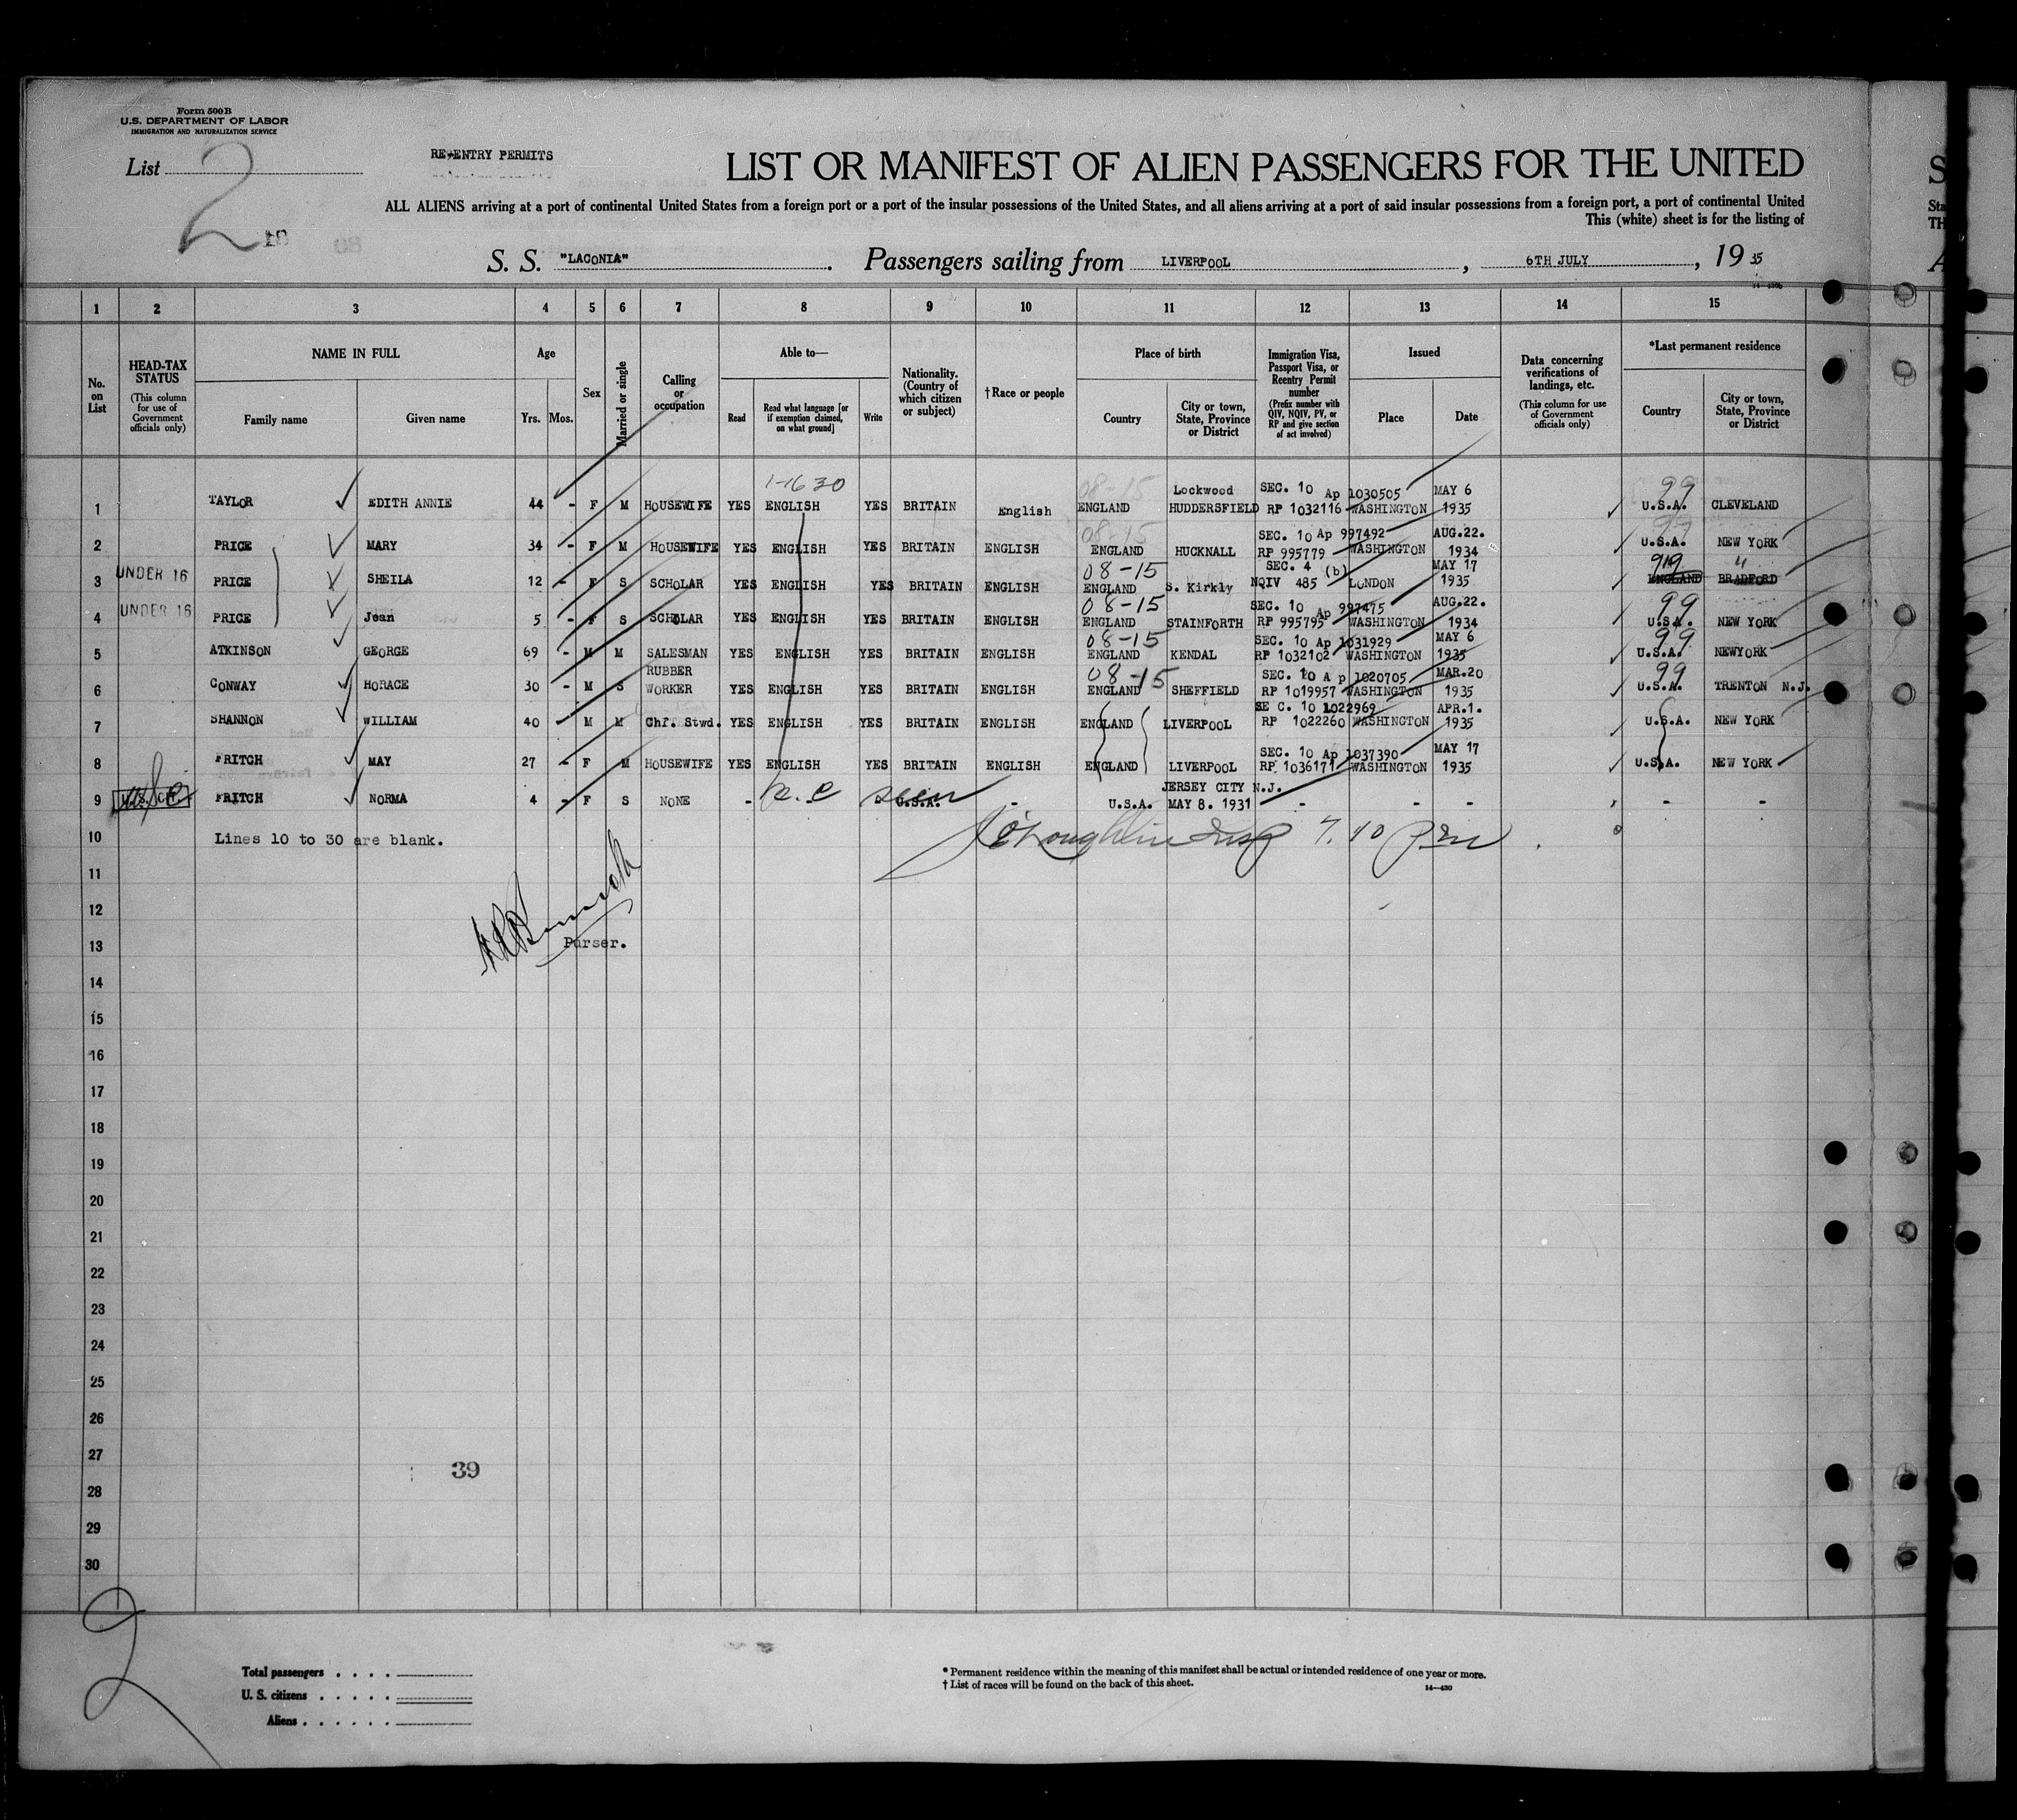 Form 500 B
U.S. DEPARTMENT OF LABOR
IMMIGRATION AND NATURALIZATION SERVICE
List 2
RE-ENTRY PERMITS
LIST OR MANIFEST OF ALIEN PASSENGERS FOR THE UNITED
ALL ALIENS arriving at a port of continental United States from a foreign port or a port of the insular possessions of the United States, and all aliens arriving at a port of said insular possessions from a foreign port, a port of continental United
This (white) sheet is for the listing of
S. S. "LACONIA". Passengers sailing from LIVERPOOL, 6TH JULY, 19 35
1 2 3 4 5 6 7 8 9 10 11 12 13 14 15
No. on List
HEAD-TAX STATUS (This column for use of Government officials only)
NAME IN FULL Family name Given name
Age Yrs. Mos.
Sex
Married or single
Calling or occupation
Able to— Read Read what language [or if exemption claimed, on what ground] Write
Nationality. (Country of which citizen or subject)
†Race or people
Place of birth Country City or town, State, Province or District
Immigration Visa, Passport Visa, or Reentry Permit number (Prefix number with QIV, NQIV, PV, or RP and give section of act involved)
Issued Place Date
Data concerning verifications of landings, etc. (This column for use of Government officials only)
*Last permanent residence Country City or town, State, Province or District
1-1630 08-15 Lockwood SEC. 10 Ap 1030505 MAY 6 99
1 TAYLOR EDITH ANNIE 44 - F M HOUSEWIFE YES ENGLISH YES BRITAIN English ENGLAND HUDDERSFIELD RP 1032116 WASHINGTON 1935 U.S.A. CLEVELAND
08-15 SEC. 10 Ap 997492 AUG.22. 99
2 PRICE MARY 34 - F M HOUSEWIFE YES ENGLISH YES BRITAIN ENGLISH ENGLAND HUCKNALL RP 995779 WASHINGTON 1934 U.S.A. NEW YORK
08-15 SEC. 4 (b) MAY 17 99 "
3 UNDER 16 PRICE SHEILA 12 - F S SCHOLAR YES ENGLISH YES BRITAIN ENGLISH ENGLAND S. Kirkly NQIV 485 LONDON 1935 ENGLAND BRADFORD
08-15 SEC. 10 Ap 997475 AUG.22. 99
4 UNDER 16 PRICE Jean 5 - F S SCHOLAR YES ENGLISH YES BRITAIN ENGLISH ENGLAND STAINFORTH RP 995795 WASHINGTON 1934 U.S.A. NEW YORK
08-15 SEC. 10 Ap 1031929 MAY 6 99
5 ATKINSON GEORGE 69 - M M SALESMAN YES ENGLISH YES BRITAIN ENGLISH ENGLAND KENDAL RP 1032102 WASHINGTON 1935 U.S.A. NEWYORK
RUBBER 08-15 SEC. 10 Ap 1020705 MAR.20 99
6 CONWAY HORACE 30 - M S WORKER YES ENGLISH YES BRITAIN ENGLISH ENGLAND SHEFFIELD RP 1019957 WASHINGTON 1935 U.S.A. TRENTON N.J.
SE C. 10 1022969 APR.1.
7 SHANNON WILLIAM 40 M M Chf. Stwd. YES ENGLISH YES BRITAIN ENGLISH ENGLAND LIVERPOOL RP 1022260 WASHINGTON 1935 U.S.A. NEW YORK
SEC. 10 Ap 1037390 MAY 17
8 FRITCH MAY 27 - F M HOUSEWIFE YES ENGLISH YES BRITAIN ENGLISH ENGLAND LIVERPOOL RP 1036171 WASHINGTON 1935 U.S.A. NEW YORK
JERSEY CITY N.J.
9 FRITCH NORMA 4 - F S NONE - seen U.S.A. - U.S.A. MAY 8. 1931 - - - - -
10 Lines 10 to 30 are blank. 7.40 pm
11
12
13 Purser.
14
15
16
17
18
19
20
21
22
23
24
25
26
27
39
28
29
30
2
Total passengers . . . .
U. S. citizens . . . . .
Aliens . . . . . .
* Permanent residence within the meaning of this manifest shall be actual or intended residence of one year or more.
† List of races will be found on the back of this sheet.
14—430